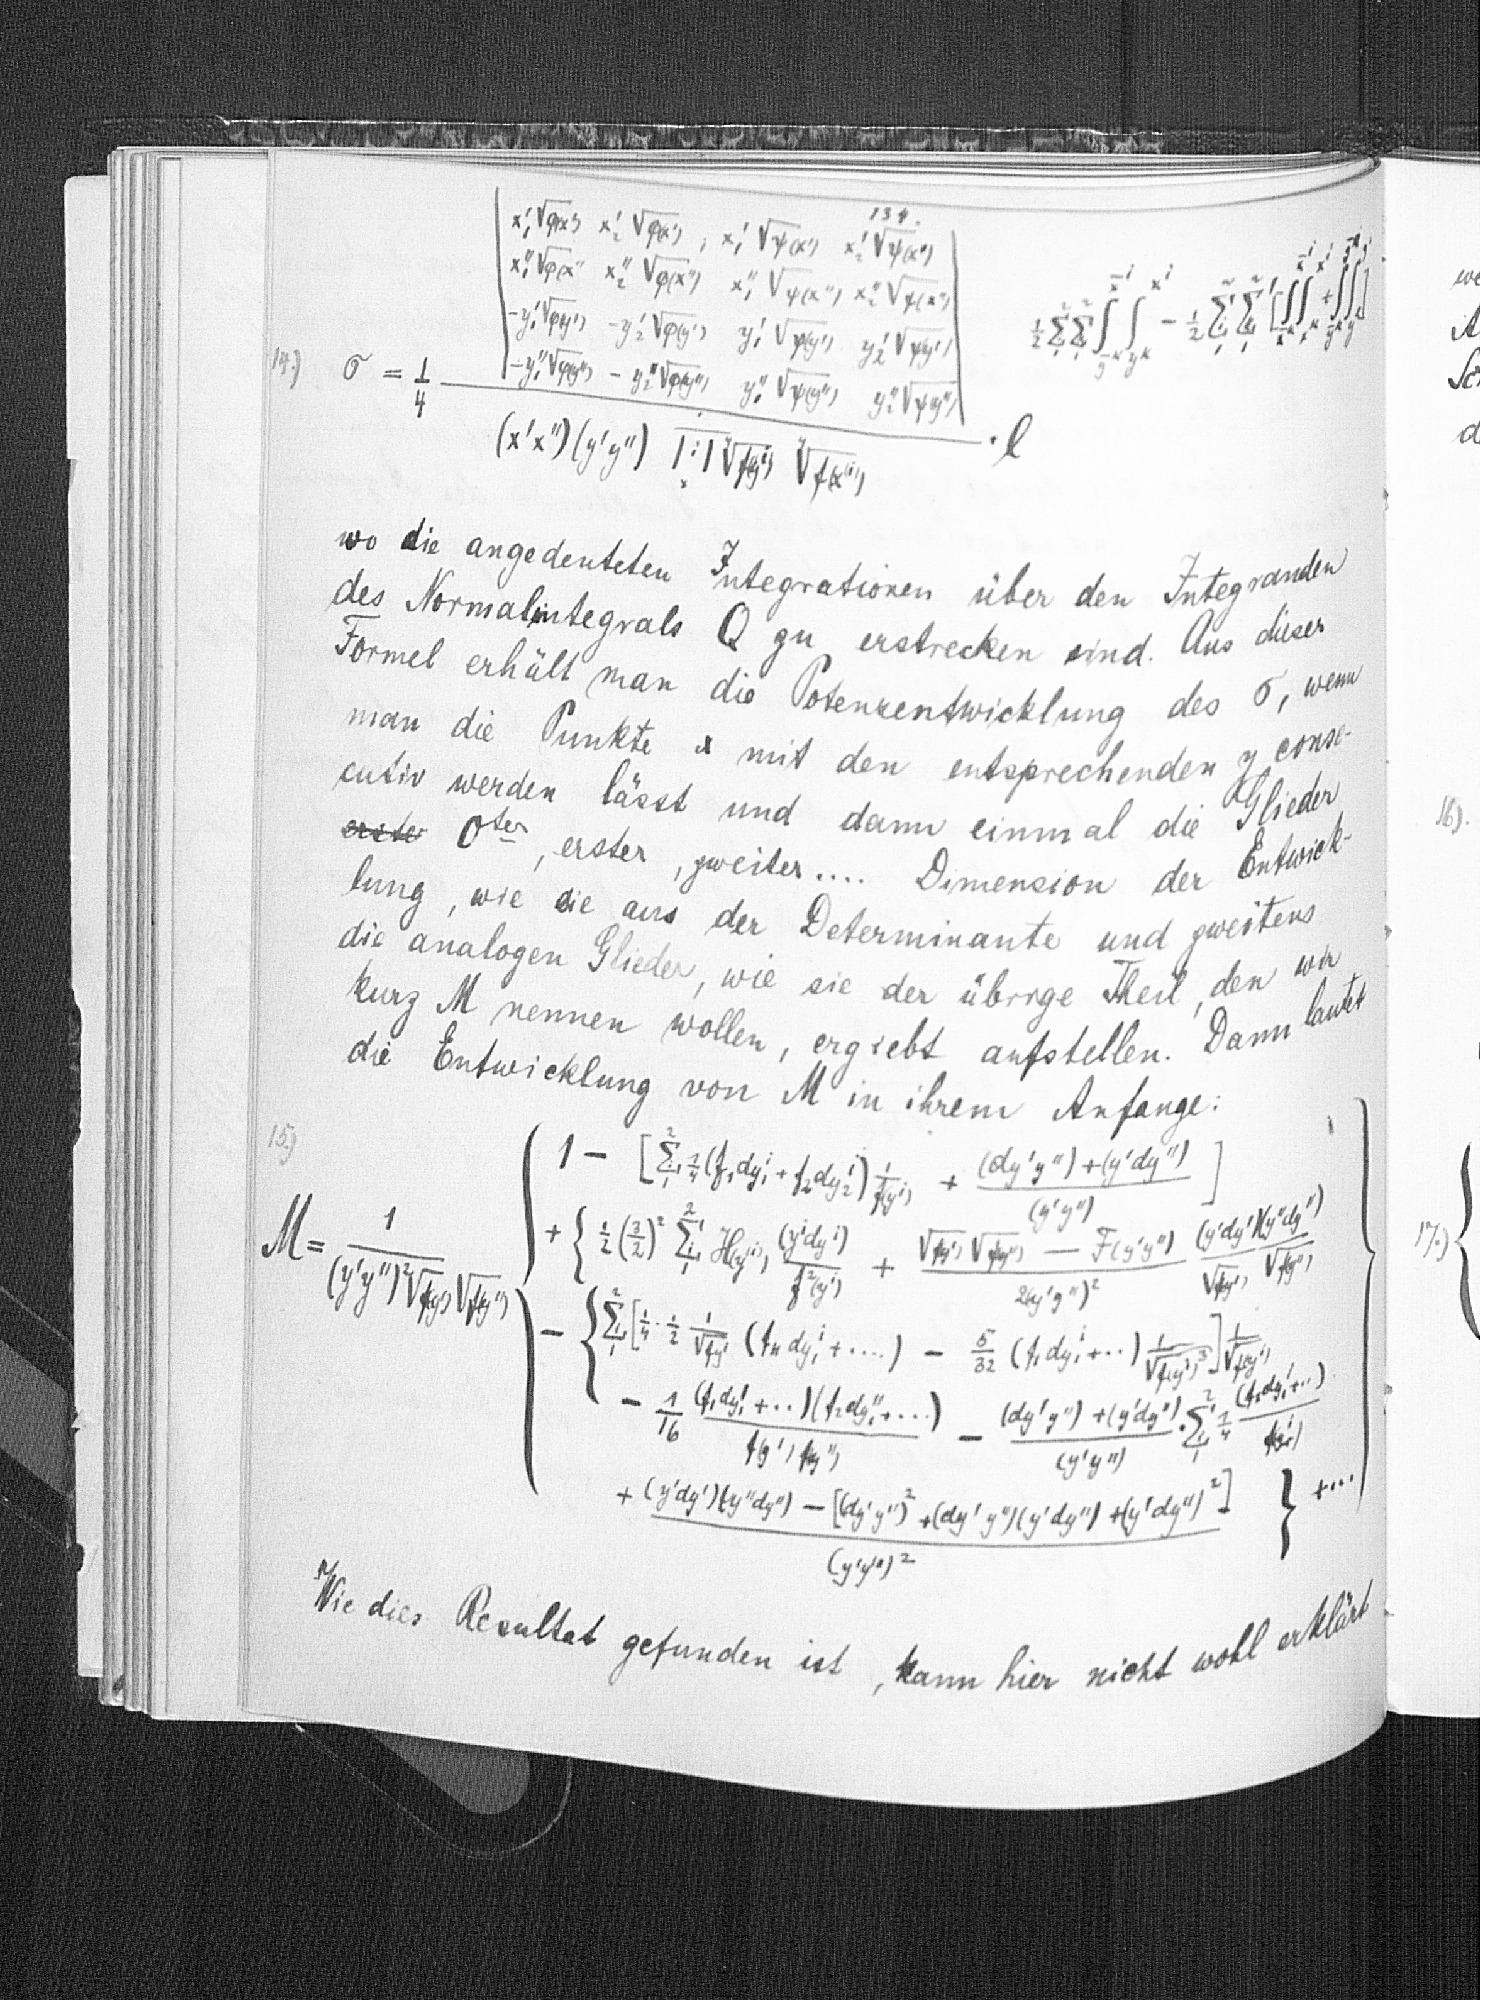 134.
x₁'√φ(x') x₂'√φ(x'), x₁'√ψ(x') x₂'√ψ(x')
x₁''√φ(x'') x₂''√φ(x'') x₁''√ψ(x'') x₂''√ψ(x'')
-y₁'√φ(y') -y₂'√φ(y') y₁'√ψ(y') y₂'√ψ(y')
14.) σ = 1/4 -y₁''√φ(y'') - y₂''√φ(y'') y₁''√ψ(y'') y₂''√ψ(y'')
(x'x'')(y'y'') · l
wo die angedeuteten Integrationen über den Integranden
des Normalintegrals Q zu erstrecken sind. Aus dieser
Formel erhält man die Potenzentwicklung des σ, wenn
man die Punkte x mit den entsprechenden y conse-
cutiv werden lässt und dann einmal die Glieder
erste 0ter, erster, zweiter.... Dimension der Entwick-
lung, wie sie aus der Determinante und zweitens
die analogen Glieder, wie sie der übrige Theil, den wir
kurz M nennen wollen, ergiebt aufstellen. Dann lautet
die Entwicklung von M in ihrem Anfange:
15.)
1 - [Σ 1/4 (f₁dy₁ⁱ + f₂dy₂ⁱ) 1/f(yⁱ) + ((dy'y'') + (y'dy''))/(y'y'')]
M = 1/((y'y'')²√f(y')√f(y''))
+ { 1/2 (3/2)² Σ H(yⁱ) (yⁱdyⁱ)/f²(yⁱ) + (√f(y')√f(y'') - F(y'y''))/2(y'y'')² (y'dy')(y''dy'')/√f(y')√f(y'')
- { Σ [1/4 · 1/2 1/√f(yⁱ) (f₁₁dy₁ⁱ + ....) - 5/32 (f₁dy₁ⁱ + ..) 1/√f(yⁱ)³] 1/√f(yⁱ)
- 1/16 (f₁dy₁' + ..)(f₂dy₁'' + ...)/f(y')f(y'') - ((dy'y'') + (y'dy''))/(y'y'') · Σ 1/4 (f₁dy₁ⁱ + ..)/f(yⁱ)
+ ((y'dy')(y''dy'') - [(dy'y'')² + (dy'y'')(y'dy'') + (y'dy'')²])/(y'y'')² } + ...
Wie dies Resultat gefunden ist, kann hier nicht wohl erklärt
16).
17.)